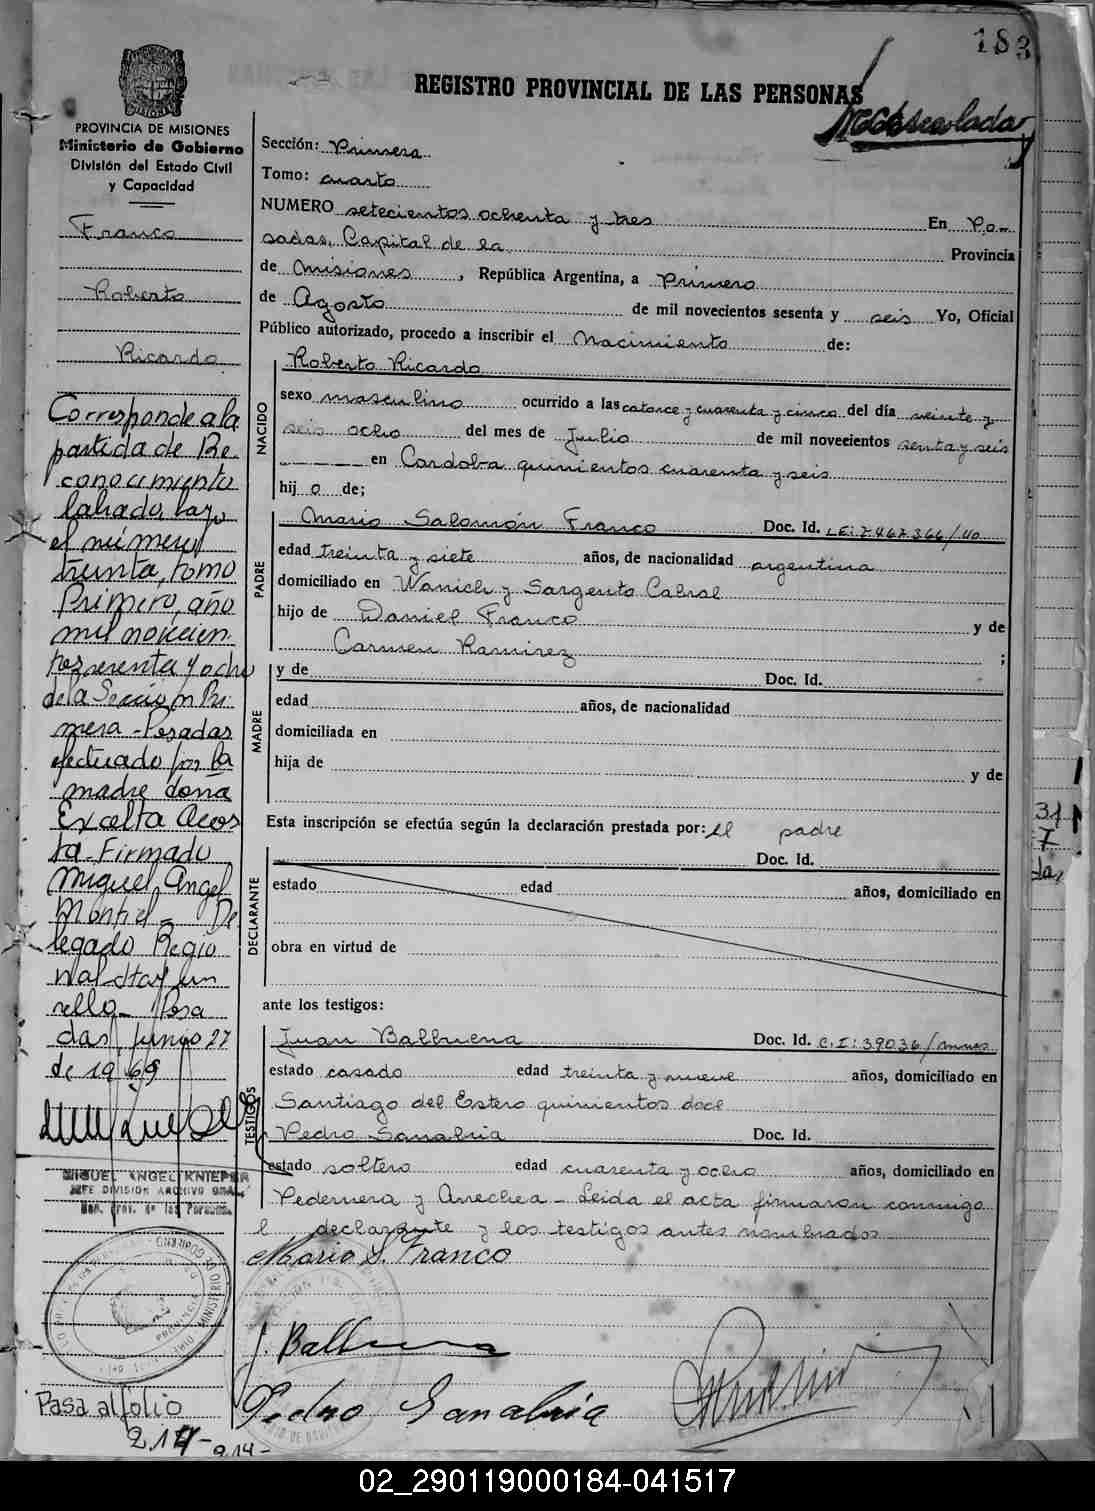 183
REGISTRO PROVINCIAL DE LAS PERSONAS
PROVINCIA DE MISIONES
Ministerio de Gobierno
División del Estado Civil
y Capacidad
Franco
Roberto
Ricardo
Corresponde a la
partida de Re
conocimiento
labrada bajo
el número
treinta, tomo
Primero, año
mil novecien
tos sesenta y ocho
de la Sección Pri
mera - Posadas
efectuado por la
madre doña
Excelta Acos
ta - Firmado
Miguel Angel
Montiel - De
legado Regio
nal - Hay un
sello - Posa
das, Junio 27
de 1969
MIGUEL ANGEL KNIEPER
JEFE DIVISION ARCHIVO GRAL.
Reg. Prov. de las Personas
Pasa al folio
214 -
214 -
Sección: Primera
Tomo: cuarto
NUMERO setecientos ochenta y tres En Po-
sadas, Capital de la Provincia
de Misiones, República Argentina, a Primero
de Agosto de mil novecientos sesenta y seis Yo, Oficial
Público autorizado, procedo a inscribir el Nacimiento de:
NACIDO
Roberto Ricardo
sexo masculino ocurrido a las catorce y cuarenta y cinco del día veinte y
seis ocho del mes de Julio de mil novecientos senta y seis
en Cordoba quinientos cuarenta y seis
hij o de;
PADRE
Mario Salomón Franco Doc. Id. L.E: 7.467.366/40
edad treinta y siete años, de nacionalidad argentina
domiciliado en Wanich y Sargento Cabral
hijo de Daniel Franco y de
Carmen Ramirez ;
MADRE
y de Doc. Id.
edad años, de nacionalidad
domiciliada en
hija de y de
Esta inscripción se efectúa según la declaración prestada por: el padre
DECLARANTE
Doc. Id.
estado edad años, domiciliado en
obra en virtud de
ante los testigos:
TESTIGOS
Juan Balbuena Doc. Id. C.I: 39036/mnes
estado casado edad treinta y nueve años, domiciliado en
Santiago del Estero quinientos doce
Pedro Sanabria Doc. Id.
estado soltero edad cuarenta y ocho años, domiciliado en
Pedernera y Arrechea - Leida el acta firmaron conmigo
l declarante y los testigos antes nombrados
Mario S. Franco
J. Balbuena
Pedro Sanabria
31
7
02_290119000184-041517